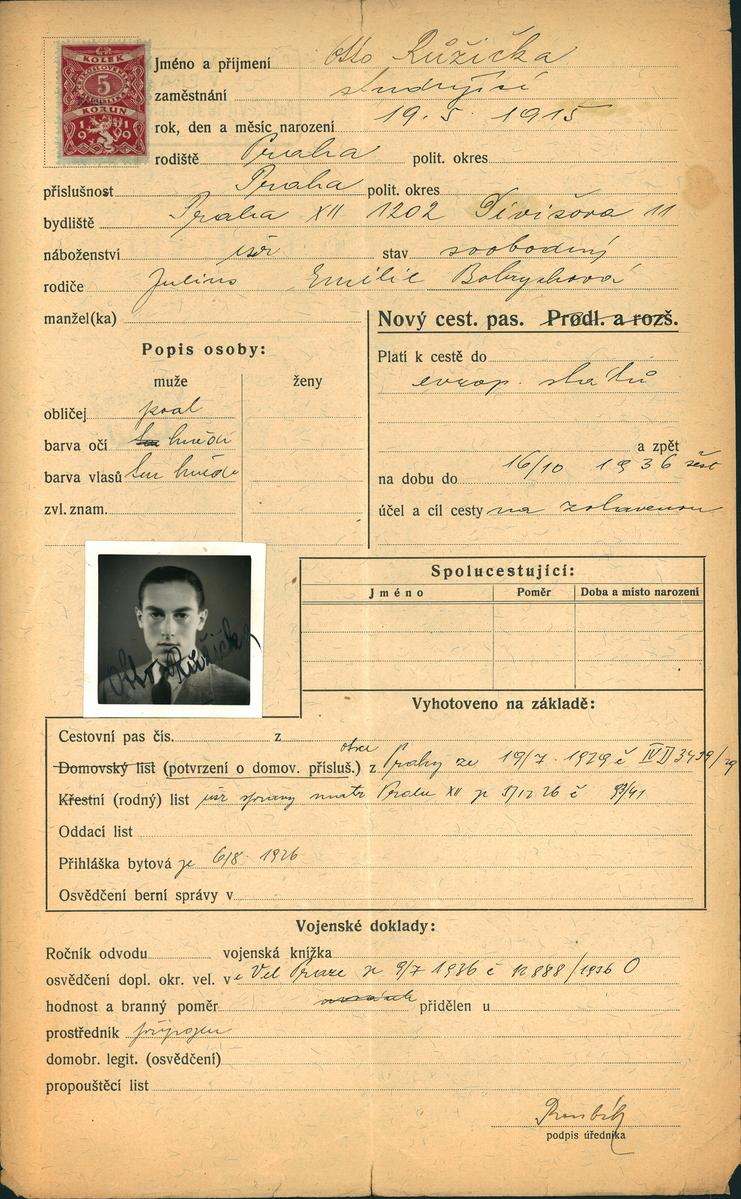 KOLEK
5
KORUN
Jméno a příjmení Otto Růžička
zaměstnání studující
rok, den a měsíc narození 19. 5. 1915
rodiště Praha polit. okres
příslušnost Praha polit. okres
bydliště Praha XII 1202 Divišova 11
náboženství isr stav svobodný
rodiče Julius Emilie
manžel(ka)
Nový cest. pas. Prodl. a rozš.
Popis osoby:
Platí k cestě do
muže ženy
evrop. států
obličej
barva očí hnědé
a zpět
barva vlasů hnědé
na dobu do 16/10 1936
zvl. znam.
účel a cíl cesty na zotavenou
Otto Růžička
Spolucestující:
Jméno Poměr Doba a místo narození
Vyhotoveno na základě:
Cestovní pas čís. z
obce
Domovský list (potvrzení o domov. přísluš.) z Prahy ze 19/7 1929 č IVD 3439/29
Křestní (rodný) list isr správy matr XII č 93/41
Oddací list
Přihláška bytová 6/8 1926
Osvědčení berní správy v
Vojenské doklady:
Ročník odvodu vojenská knížka
osvědčení dopl. okr. vel. v Vel Praze 9/7 1936 č 12888/1936
hodnost a branný poměr přidělen u
prostředník
domobr. legit. (osvědčení)
propouštěcí list
podpis úředníka